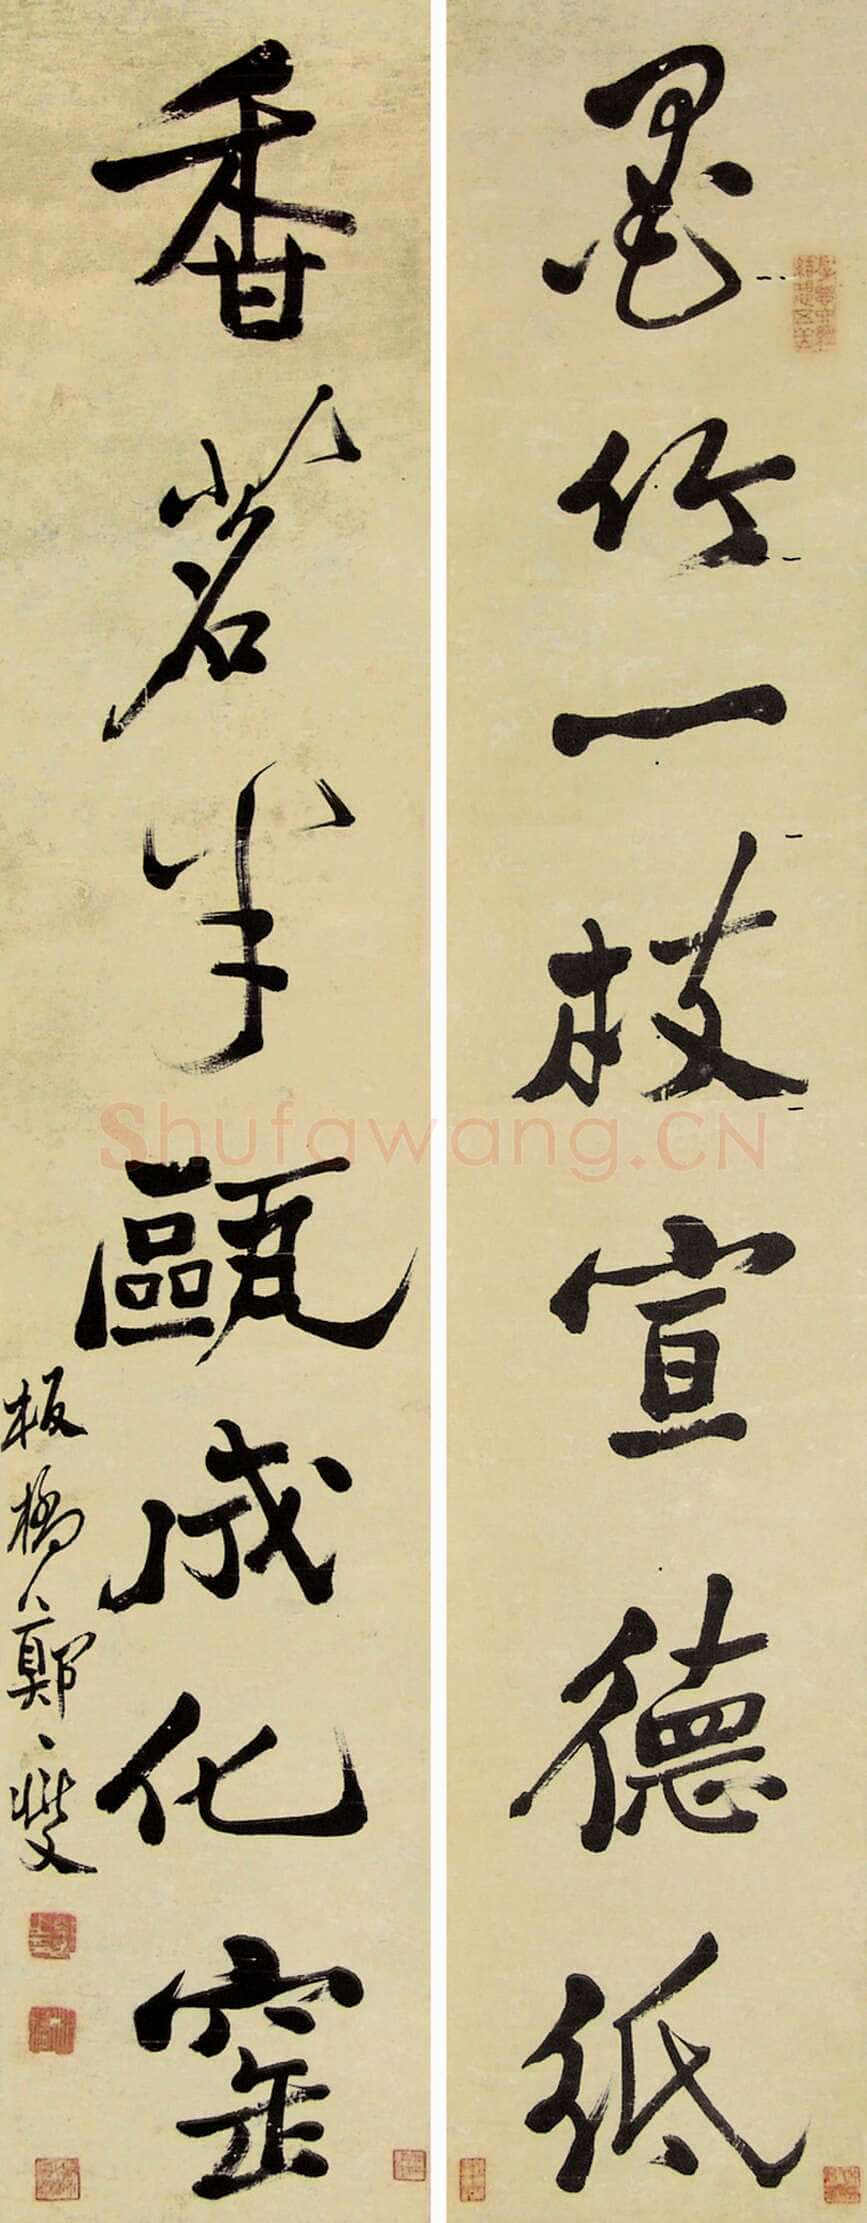 墨竹一枝宣德紙
香茗半甌成化窑
板橋鄭燮
Shufawang.CN